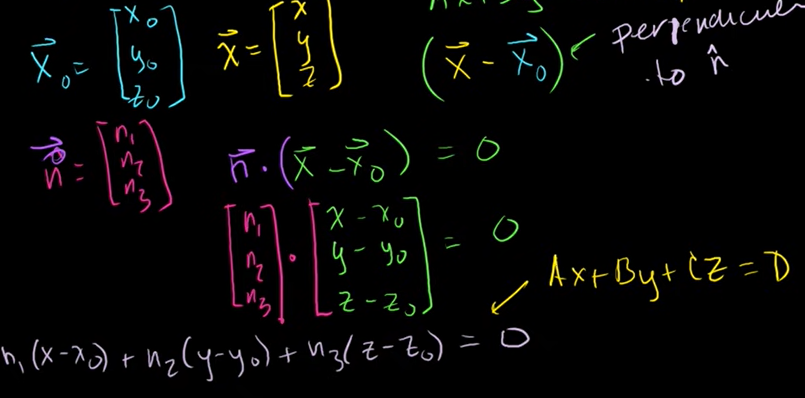 x⃗₀ = [x₀ y₀ z₀]
x⃗ = [x y z]
(x⃗ - x⃗₀)
to n̂
n⃗ = [n₁ n₂ n₃]
n⃗ · (x⃗ - x⃗₀) = 0
[n₁ n₂ n₃] · [x - x₀ y - y₀ z - z₀] = 0
Ax + By + Cz = D
n₁(x-x₀) + n₂(y-y₀) + n₃(z-z₀) = 0